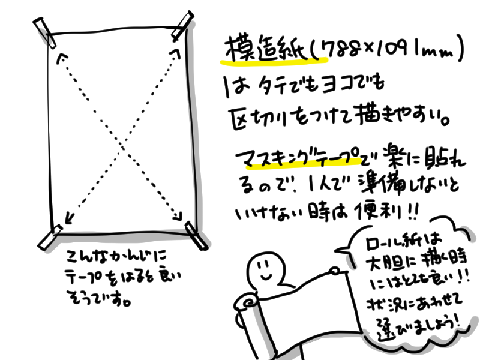 模造紙(788×1091mm)
はタテでもヨコでも
区切りをつけて描きやすい。
マスキングテープで楽に貼れ
るので、1人で準備しないと
いけない時は便利!!
こんなかんじに
テープをはると良い
そうです。
ロール紙は
大胆に描く時
にはとても良い!!
状況にあわせて
選びましょう!